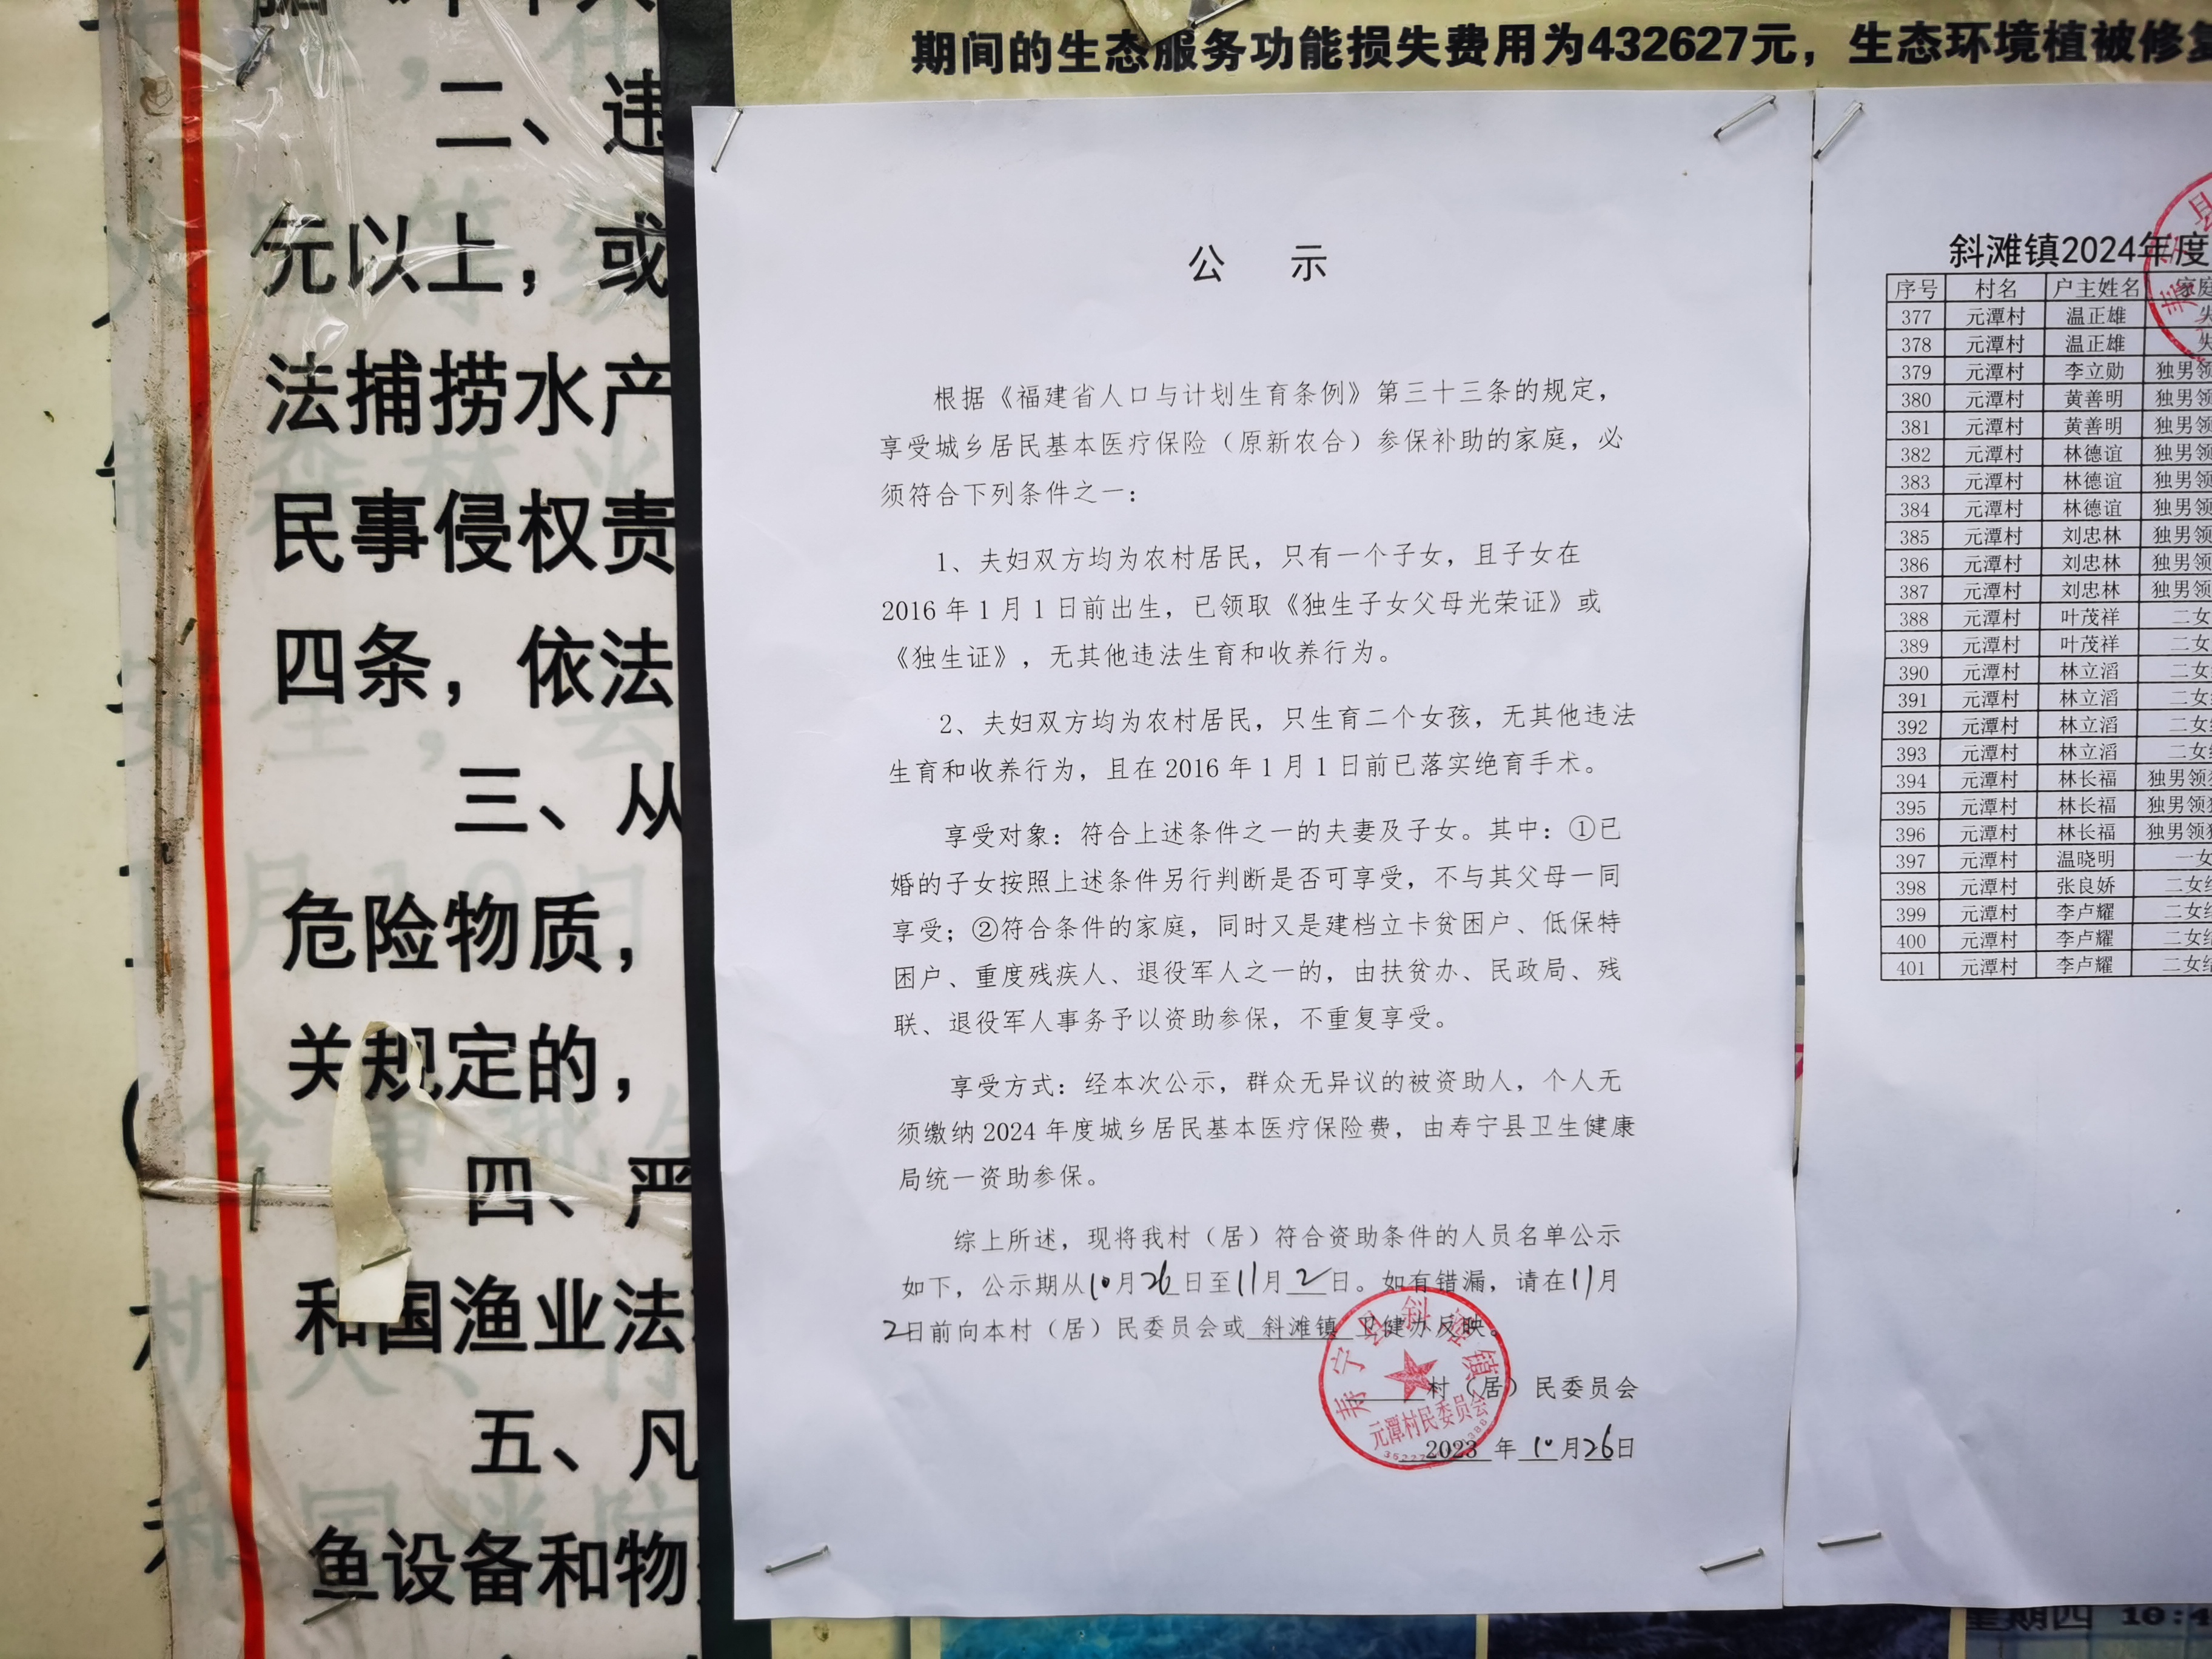 期间的生态服务功能损失费用为432627元，生态环境植被修复
二、违
元以上，或
法捕捞水产
民事侵权责
四条，依法
三、从
危险物质，
关规定的，
四、严
和国渔业法
五、凡
鱼设备和物
公 示
根据《福建省人口与计划生育条例》第三十三条的规定，
享受城乡居民基本医疗保险（原新农合）参保补助的家庭，必
须符合下列条件之一：
1、夫妇双方均为农村居民，只有一个子女，且子女在
2016年1月1日前出生，已领取《独生子女父母光荣证》或
《独生证》，无其他违法生育和收养行为。
2、夫妇双方均为农村居民，只生育二个女孩，无其他违法
生育和收养行为，且在2016年1月1日前已落实绝育手术。
享受对象：符合上述条件之一的夫妻及子女。其中：①已
婚的子女按照上述条件另行判断是否可享受，不与其父母一同
享受；②符合条件的家庭，同时又是建档立卡贫困户、低保特
困户、重度残疾人、退役军人之一的，由扶贫办、民政局、残
联、退役军人事务予以资助参保，不重复享受。
享受方式：经本次公示，群众无异议的被资助人，个人无
须缴纳2024年度城乡居民基本医疗保险费，由寿宁县卫生健康
局统一资助参保。
综上所述，现将我村（居）符合资助条件的人员名单公示
如下，公示期从10月26日至11月2日。如有错漏，请在11月
2日前向本村（居）民委员会或 斜滩镇 卫健办反映。
村（居）民委员会
2023年10月26日
寿宁县斜滩镇
元潭村民委员会
斜滩镇2024年度
序号 村名 户主姓名 家庭
377 元潭村 温正雄 失
378 元潭村 温正雄 失
379 元潭村 李立勋 独男领
380 元潭村 黄善明 独男领
381 元潭村 黄善明 独男领
382 元潭村 林德谊 独男领
383 元潭村 林德谊 独男领
384 元潭村 林德谊 独男领
385 元潭村 刘忠林 独男领
386 元潭村 刘忠林 独男领
387 元潭村 刘忠林 独男领
388 元潭村 叶茂祥 二女
389 元潭村 叶茂祥 二女
390 元潭村 林立滔 二女
391 元潭村 林立滔 二女
392 元潭村 林立滔 二女
393 元潭村 林立滔 二女
394 元潭村 林长福 独男领
395 元潭村 林长福 独男领
396 元潭村 林长福 独男领
397 元潭村 温晓明 一女
398 元潭村 张良娇 二女结
399 元潭村 李卢耀 二女结
400 元潭村 李卢耀 二女结
401 元潭村 李卢耀 二女结
星期四 10:4